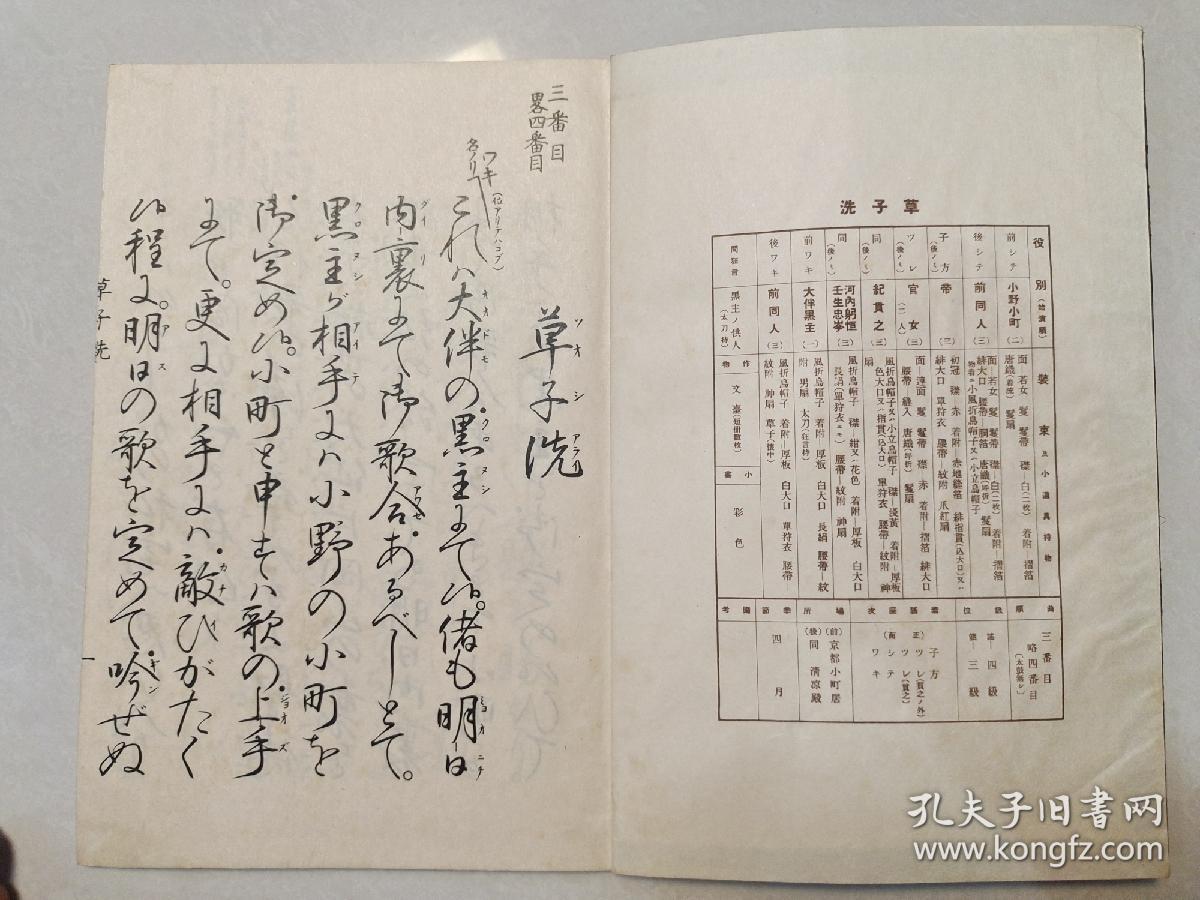 草子洗
役別(謡演順)
装束及小道具持物
前シテ 小野小町(二)
面―若女 鬘 鬘帯 襟―白(二枚) 着附―摺箔
唐織(着流) 鬘扇
後シテ 前同人(三)
面―若女 鬘 鬘帯 襟―白(二枚) 着附―摺箔
緋大口 腰帯 唐織(坪折) 鬘扇
子方(後ノミ) 帝(三)
初冠 襟―赤 着附―赤地縫箔 緋指貫(込大口)又ハ
緋大口 單狩衣 腰帯―紋附 爪紅扇
ツレ(後ノミ) 官女(二人)(三)
腰帯―縫入 唐織(坪折) 鬘扇
同(後ノミ) 紀貫之(三)
間(後ノミ) 河内躬恒 壬生忠岑
風折烏帽子 襟―紺又ハ花色 着附―厚板 白大口
長絹(單狩衣ニモ) 腰帯―紋附 神扇
前ワキ 大伴黒主(一)
風折烏帽子 着附―厚板 白大口 長絹 腰帯―紋
附 男扇 太刀(狂言持)
後ワキ 前同人(三)
風折烏帽子 着附―厚板 白大口 單狩衣 腰帯―
紋附 神扇 草子(懐中)
間狂言 黒主ノ供人(太刀持)
作物 文臺(短冊數枚)
小書 彩色
曲順 三番目 略四番目(太鼓無シ)
級位
謡―四級
能―三級
子方
ツレ(貫之ノ外)
ツレ(貫之)
シテ
ワキ
場所
(前)京都小町居
(後)同 清凉殿
季節 四月
備考
三番目
畧四番目
草子洗
ワキ
名ノリ
(位アリテハコブ)
これハ大伴の黒主にて候。偖も明日
内裏にて御歌合あるべしとて。
黒主が相手にハ小野の小町を
御定め候。小町と申すハ歌の上手
にて。更に相手にハ敵ひがたく
候程に。明日の歌を定めて吟ぜぬ
草子洗
一
孔夫子旧书网
www.kongfz.com